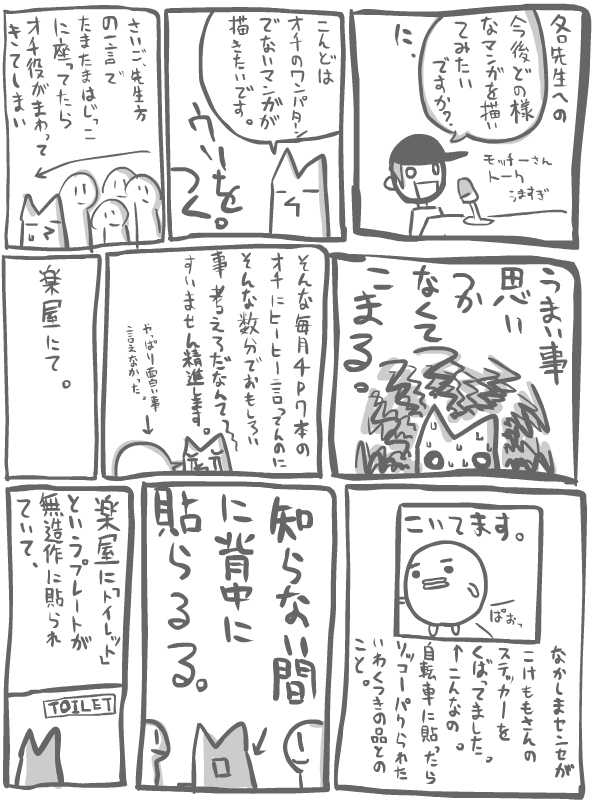 各先生への
今後どの様
なマンガを描い
てみたい
ですか?
に、
モッチーさん
トーク
うますぎ
こんどは
オチのワンパターン
でないマンガが
描きたいです。
ウソをつく。
さいご、先生方
の一言で
たまたまはじっこ
に座ってたら
オチ役がまわって
きてしまい
うまい事
思い
つか
なくて
こまる。
そんな毎月4P7本の
オチにヒーヒー言ってんのに
そんな数分でおもしろい
事考えろだなんて〜
すいません精進します。
やっぱり面白い事
言えなかった。
楽屋にて。
なかしまセンセが
こけももさんの
ステッカーを
くばってました。
↑こんなの。
自転車に貼ったら
ソッコーパクられた
いわくつきの品との
こと。
こいてます。
ぱおっ
知らない間
に背中に
貼らるる。
楽屋に「トイレット」
というプレートが
無造作に貼られ
ていて、
TOILET